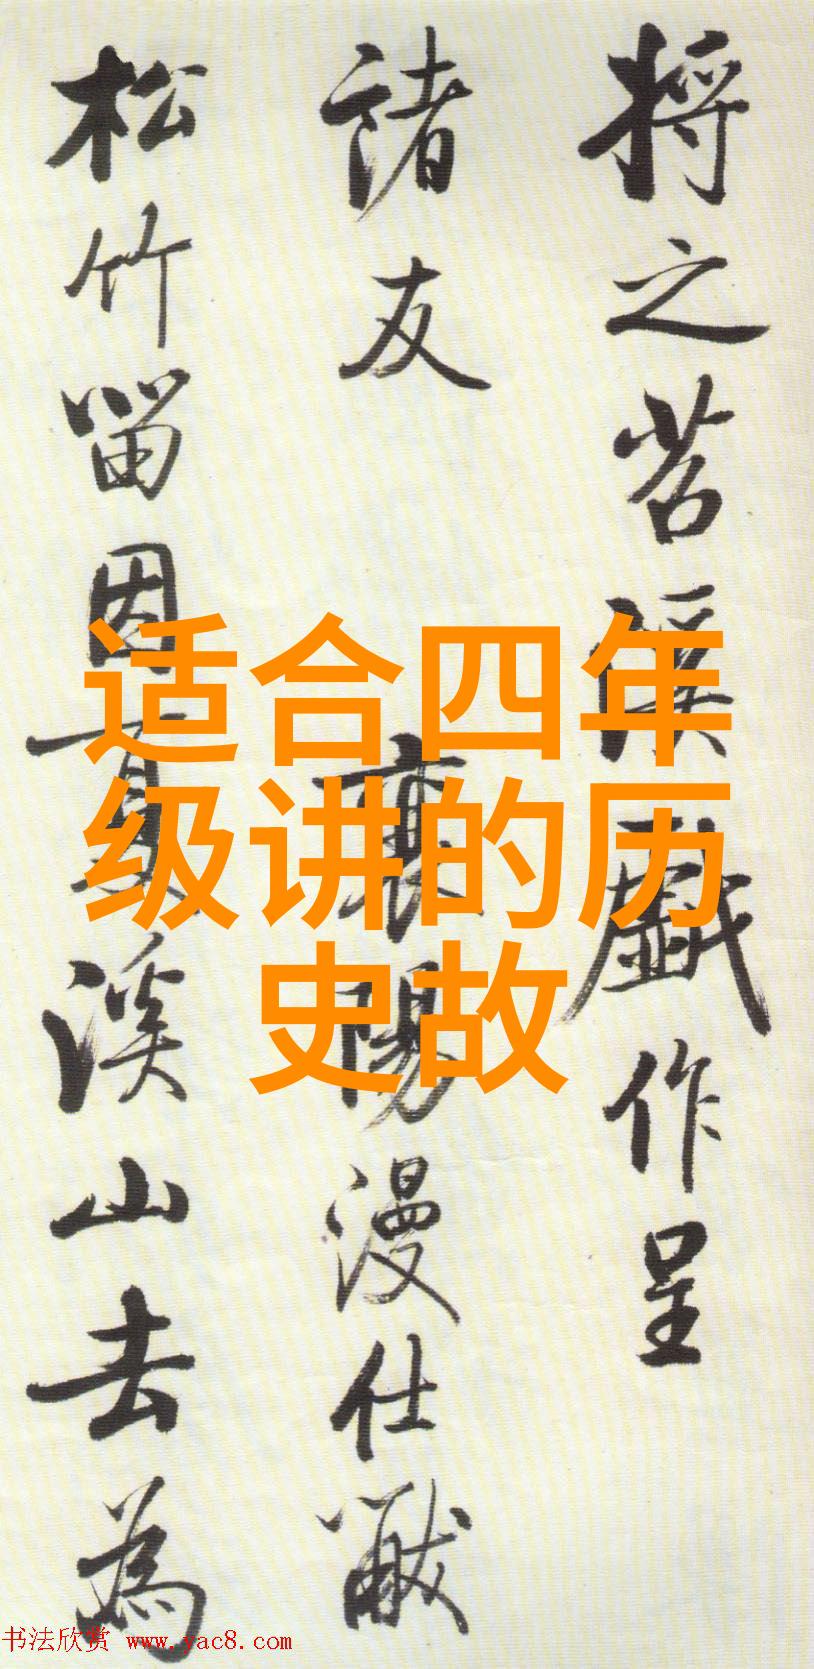 将之苕溪戲作呈
諸友
襄陽漫仕黻
松竹留因夏溪山去為
适合四年
级讲的历
史故
书法欣赏 www.yac8.com